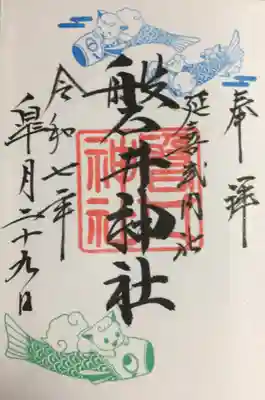 奉拝
延喜式内社
磐井神社
磐井神社
令和七年
皐月二十九日